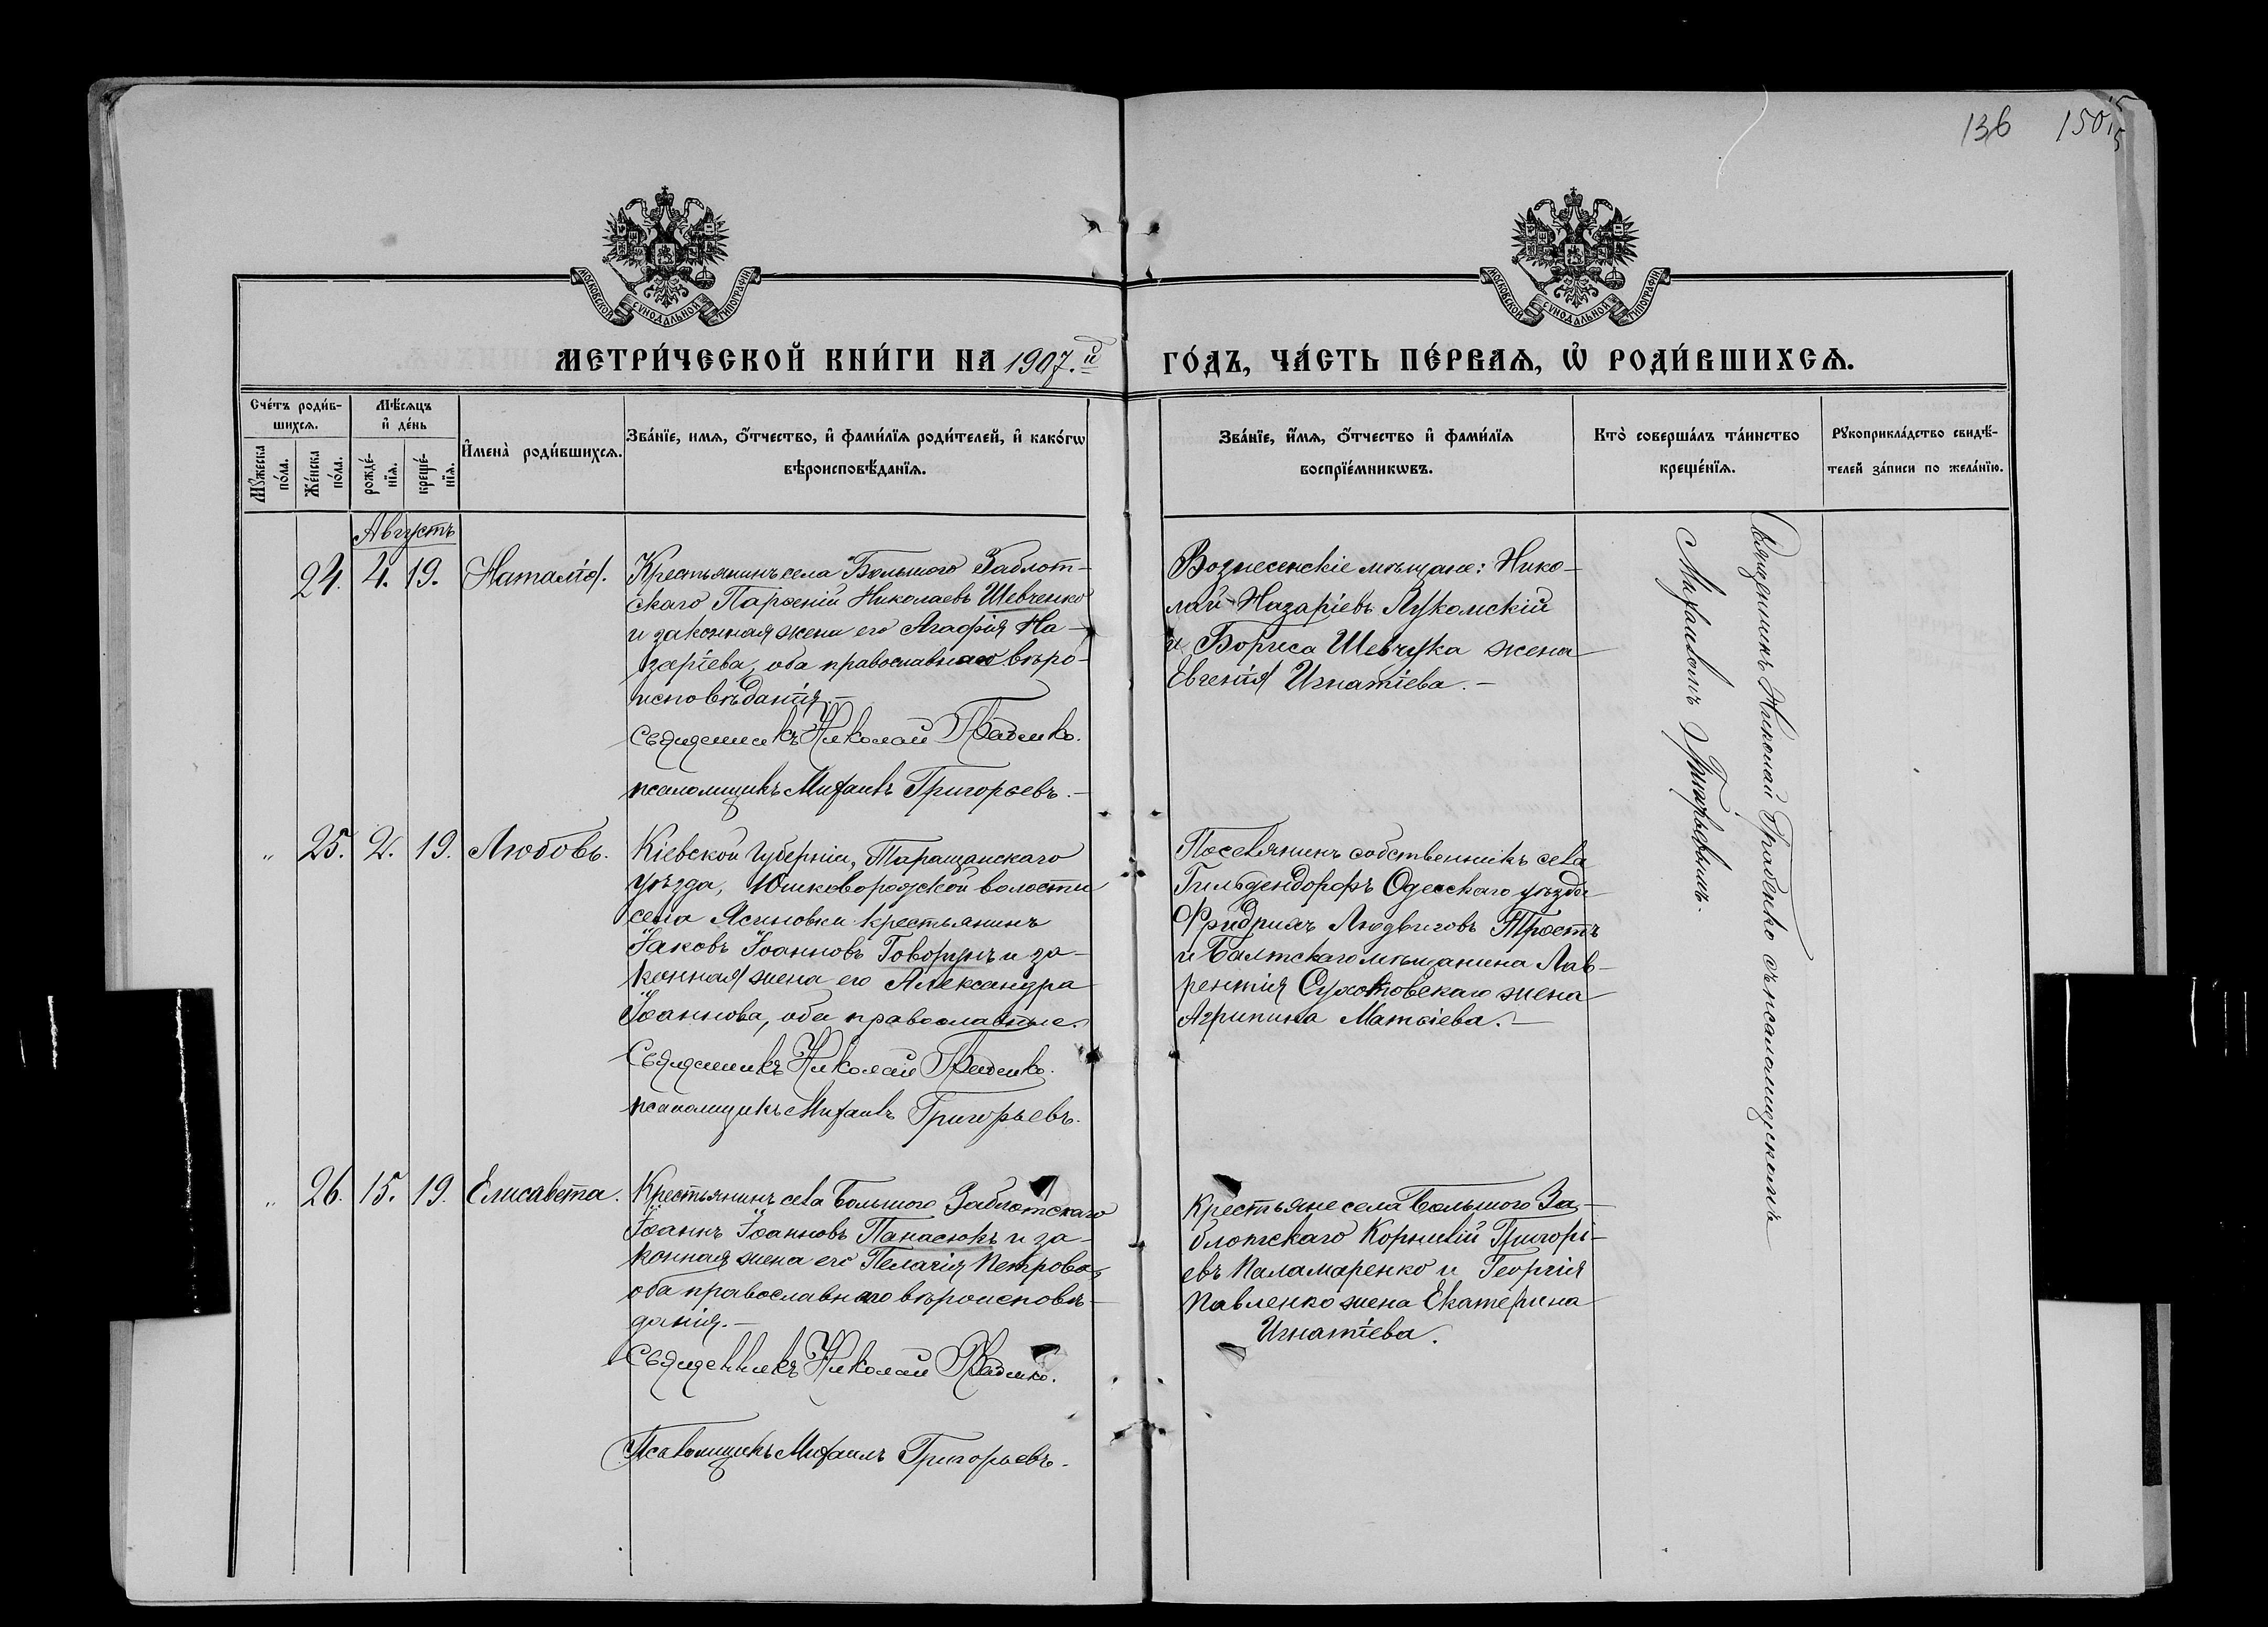 136 150
МОСКОВСКОЙ СѴНОДАЛЬНОЙ ТИПОГРАФІИ
МОСКОВСКОЙ СѴНОДАЛЬНОЙ ТИПОГРАФІИ
МЕТРИ́ЧЕСКОЙ КНИ́ГИ НА 1907.й ГО́ДЪ, ЧА́СТЬ ПЕ́РВАѦ, Ѡ҆ РОДИ́ВШИХСѦ.
Сче́тъ роди́в-
шихсѧ.
Мꙋ́жеска по́ла.
Же́нска по́ла.
Мѣ́сѧцъ
и҆ де́нь
рожде́-
нїѧ.
креще́-
нїѧ.
И҆мена̀ роди́вшихсѧ.
Зва́нїе, имѧ, ѻ҆́тчество, и҆ фами́лїѧ роди́телей, и҆ како́гѡ
вѣроисповѣ́данїѧ.
Зва́нїе, и҆́мѧ, ѻ҆́тчество и҆ фами́лїѧ
воспрїе́мникѡвъ.
Кто̀ соверша́лъ та́инство
креще́нїѧ.
Рꙋкоприкла́дство свидѣ́-
телей за́писи по жела́нїю.
Августъ
24. 4. 19. Наталія.
Крестьянинъ села Большого Заблот-
скаго Парѳеній Николаевъ Шевченко
и законная жена его Агафія На-
заріева, оба православнаго вѣро-
исповѣданія.
Священникъ Николай Грабенко.
псаломщикъ Михаилъ Григорьевъ.
Вознесенскіе мѣщане: Нико-
лай Назаріевъ Лукомскій
и Бориса Шевчука жена
Евгенія Игнатіева.
" 25. 2. 19. Любовь.
Кіевской Губерніи, Таращанскаго
уѣзда, Юшковорожской волости
села Ясиновки крестьянинъ
Іаковъ Іоанновъ Говорунъ и за-
конная жена его Александра
Іоаннова, оба православные.
Священникъ Николай Грабенко.
псаломщикъ Михаилъ Григорьевъ.
Поселянинъ собственникъ села
Гильдендорфъ Одесскаго уѣзда
Фридрихъ Людвиговъ Тростъ
и Балтскаго мѣщанина Лав-
рентія Сухотовскаго жена
Агрипина Матѳіева.
" 26. 15. 19. Елисавета.
Крестьянинъ села Большого Заблотскаго
Іоаннъ Іоанновъ Панасюкъ и за-
конная жена его Пелагія Петрова,
оба православнаго вѣроисповѣ-
данія.
Священникъ Николай Грабенко.
Псаломщикъ Михаилъ Григорьевъ.
Крестьяне села Большого За-
блотскаго Корнилій Григорі-
евъ Паламаренко и Георгія
Павленко жена Екатерина
Игнатіева.
Священникъ Николай Грабенко съ псаломщикомъ
Михаиломъ Григорьевымъ.